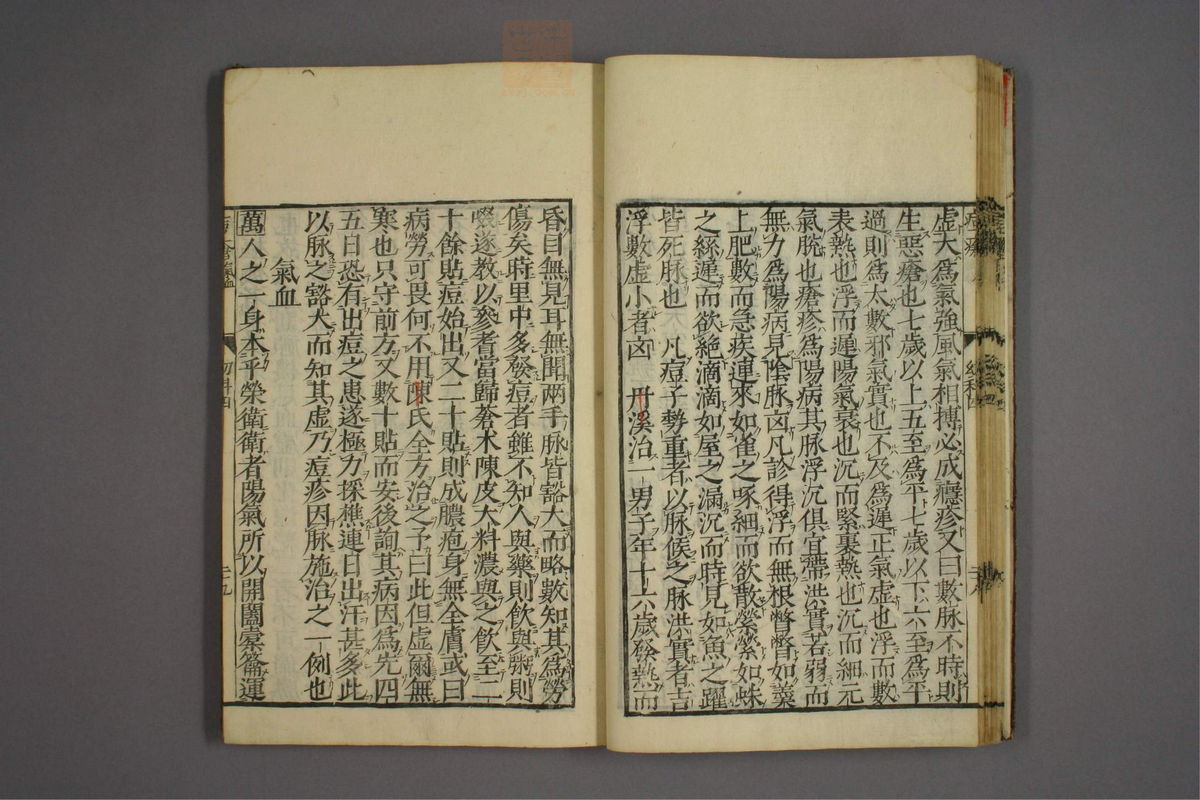 虛大爲氣強風氣相搏必成癮疹又曰數脉不時則
生惡瘡也七歲以上五至爲平七歲以下六至爲平
過則爲太數邪氣實也不及爲遲正氣虛也浮而數
表熱也浮而遲陽氣衰也沉而緊裏熱也沉而細元
氣脱也瘡疹爲陽病其脉浮沉俱宜帶洪實若弱而
無力爲陽病見陰脉凶凡診得浮而無根瞥瞥如羮
上肥數而急疾連來如雀之啄細而欲散縈縈如蛛
之絲遲而欲絶滴滴如屋之漏沉而時見如魚之躍
皆死脉也 凡痘子勢重者以脉候之脉洪實者吉
浮數虛小者凶 丹溪治一男子年十六歲發熱而
昏目無見耳無聞兩手脉皆豁大而略數知其爲勞
傷矣時里中多發痘者雖不知人與藥則飲與粥則
啜遂教以參耆當歸蒼术陳皮大料濃與之飲至二
十餘貼痘始出又二十貼則成膿疱身無全膚或曰
病勞可畏何不用陳氏全方治之予曰此但虛爾無
寒也只守前方又數十貼而安後詢其病因爲先四
五日恐有出痘之患遂極力探樵連日出汗甚多此
以脉之豁大而知其虛乃痘疹因脉施治之一例也
氣血
萬人之一身本乎榮衛衛者陽氣所以開闔橐籥運